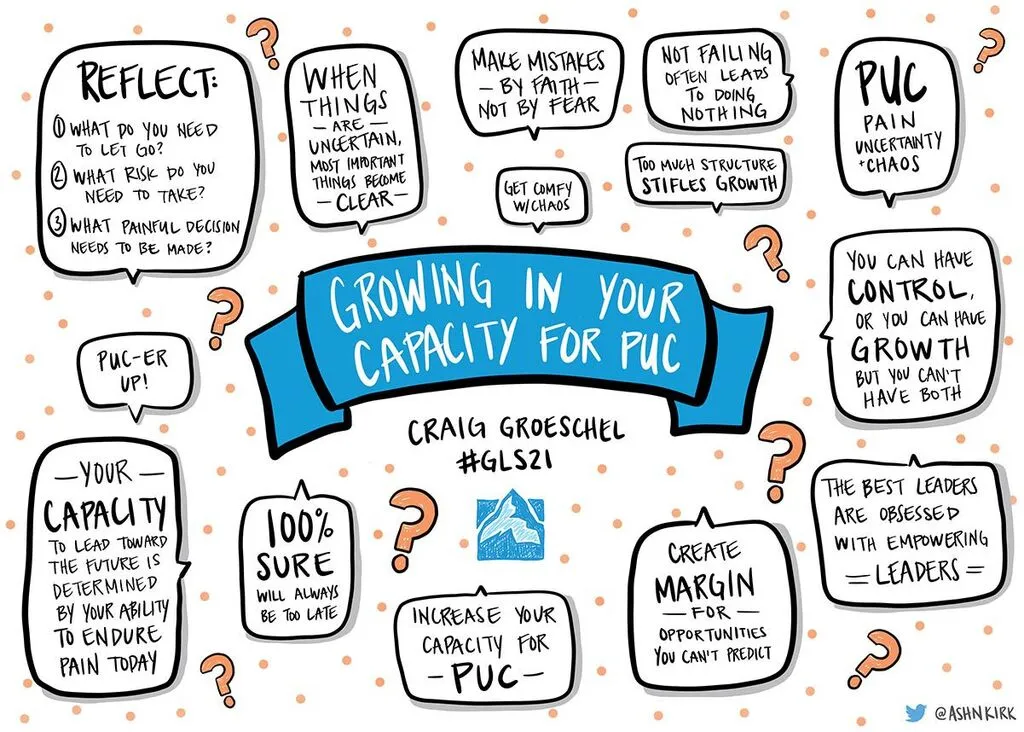 REFLECT:
① WHAT DO YOU NEED
TO LET GO?
② WHAT RISK DO YOU
NEED TO TAKE?
③ WHAT PAINFUL DECISION
NEEDS TO BE MADE?
WHEN
THINGS
— ARE —
UNCERTAIN,
MOST IMPORTANT
THINGS BECOME
— CLEAR —
MAKE MISTAKES
— BY FAITH —
NOT BY FEAR
NOT FAILING
OFTEN LEADS
TO DOING
NOTHING
PUC
PAIN
UNCERTAINTY
+ CHAOS
GET COMFY
W/CHAOS
TOO MUCH STRUCTURE
STIFLES GROWTH
GROWING IN YOUR
CAPACITY FOR PUC
CRAIG GROESCHEL
#GLS21
YOU CAN HAVE
CONTROL,
OR YOU CAN HAVE
GROWTH
BUT YOU CAN'T
HAVE BOTH
PUC-ER
UP!
— YOUR —
CAPACITY
TO LEAD TOWARD
THE FUTURE IS
DETERMINED
BY YOUR ABILITY
TO ENDURE
PAIN TODAY
100%
SURE
WILL ALWAYS
BE TOO LATE
INCREASE YOUR
CAPACITY FOR
— PUC —
CREATE
MARGIN
— FOR —
OPPORTUNITIES
YOU CAN'T PREDICT
THE BEST LEADERS
ARE OBSESSED
WITH EMPOWERING
= LEADERS =
@ASHNKIRK